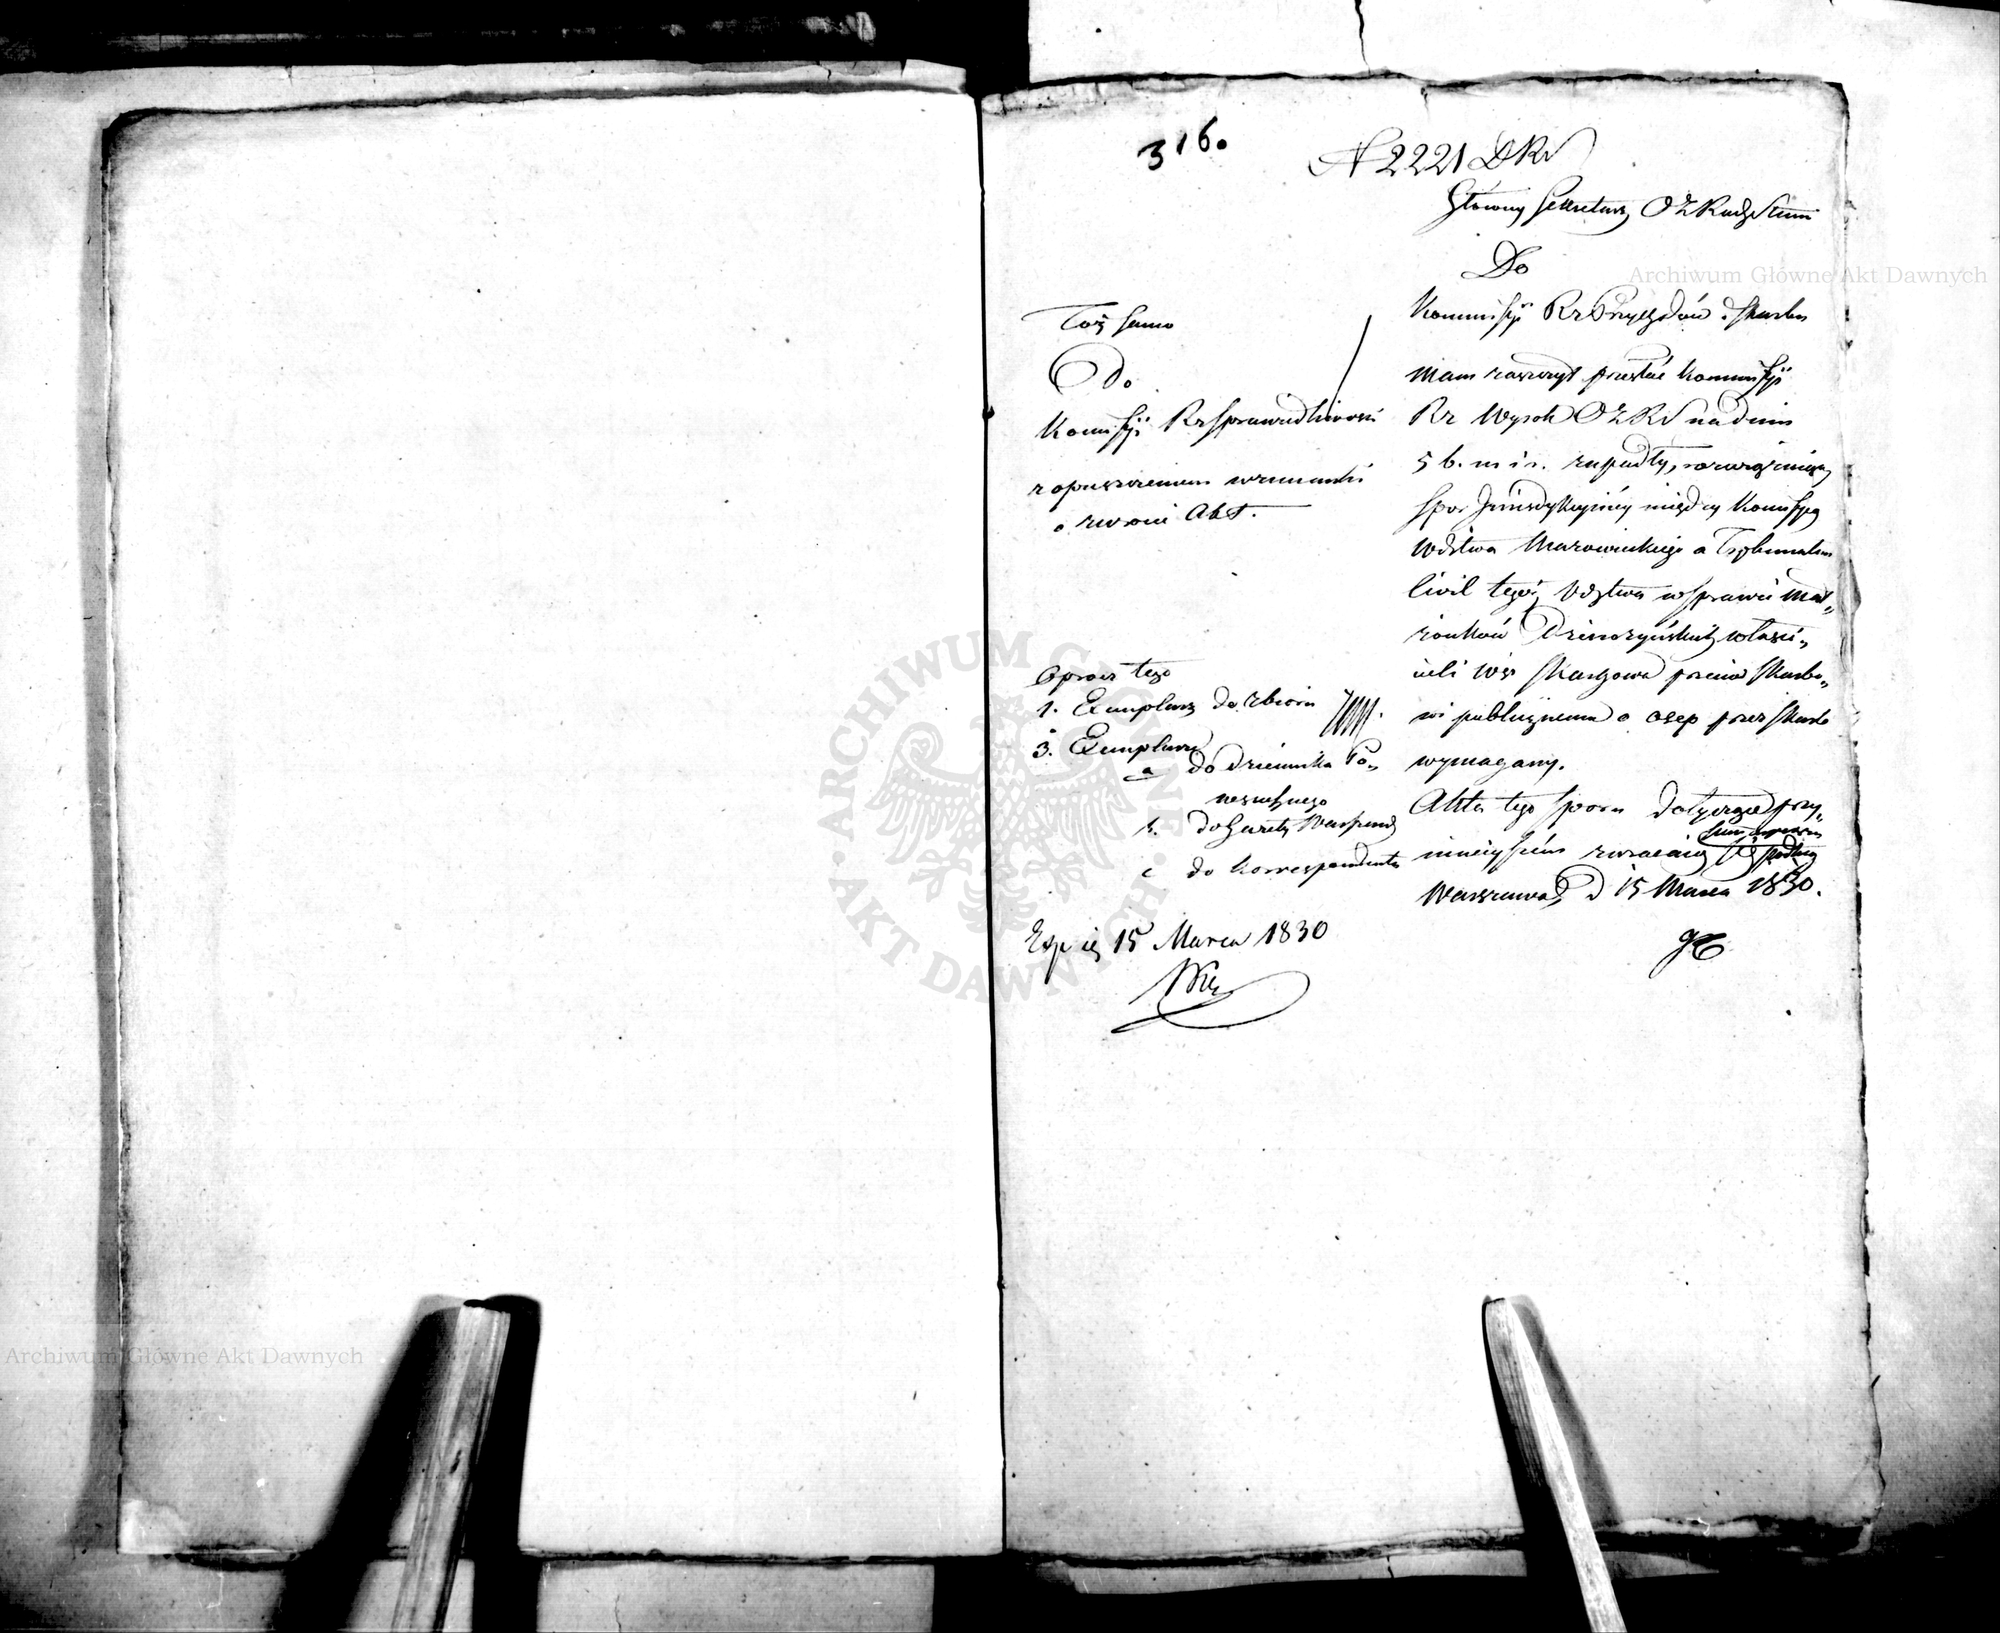 316.
N 2221 D RS
Główny Sekretarz O Z Rady Stanu
Do
Kommissyi Rz Przychodów i Skarbu
Mam zaszczyt przesłać Kommissyi
Rz Wyrok O Z RS na dniu
5 b. m i r. zapadły, rozwiązujący
spor Jurisdykcyiny między Kommissyą
Wdztwa Mazowieckiego a Trybunałem
Civil tegoż Wdztwa w sprawie Mał„
żonków właści„
cieli wsi przeciw Skarbo„
wi publicznemu o osep przez Skarb
wymagany.
Akta tego sporu dotyczące przy
ninieyszem zwracaią się podług
Warszawa d 15 Marca 1830.
Toż samo
Do
Kommissyi Rz Sprawiedliwości
z opuszczeniem wzmianki
o zwrocie Akt.
Oprócz tego
1. Exemplarz do zbioru
3. Exemplarze
a do Dziennika Po„
wszechnego
b. do Gazety Warszawsk
c do Korrespondenta
Exp ie 15 Marca 1830
Archiwum Główne Akt Dawnych
Archiwum Główne Akt Dawnych
ARCHIWUM GŁÓWNE AKT DAWNYCH